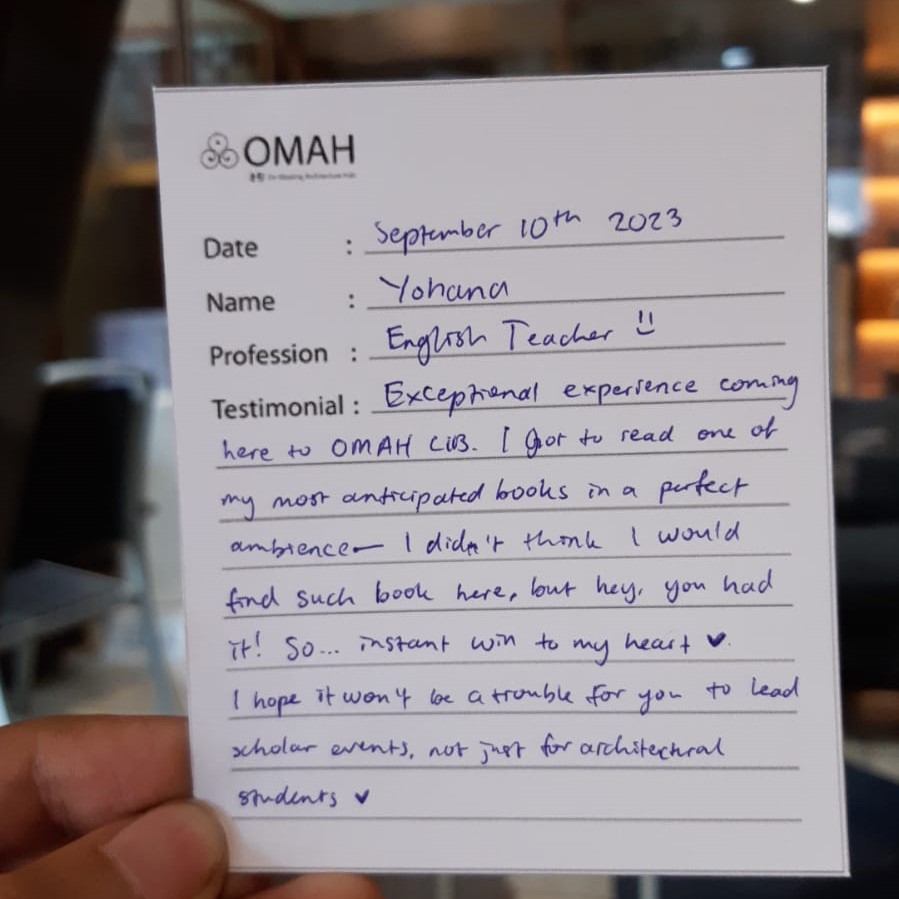 OMAH
Date : September 10th 2023
Name : Yohana
Profession : English Teacher
Testimonial : Exceptional experience coming
here to OMAH LIB. I got to read one of
my most anticipated books in a perfect
ambience— I didn't think I would
find such book here, but hey, you had
it! So... instant win to my heart ♥.
I hope it won't be a trouble for you to lead
scholar events, not just for architectural
students ♥